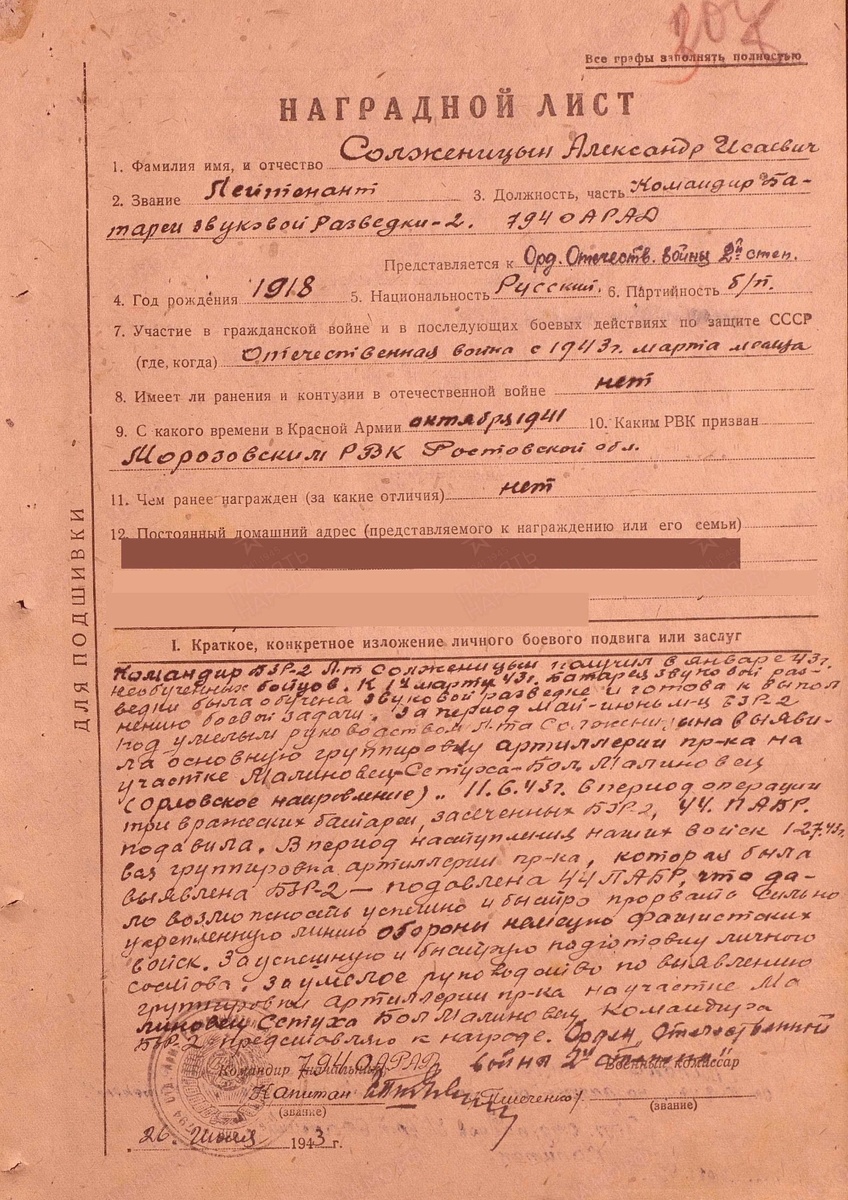 Все графы заполнять полностью
НАГРАДНОЙ ЛИСТ
1. Фамилия имя, и отчество Солженицын Александр Исаевич
2. Звание Лейтенант 3. Должность, часть Командир ба-
тареи звуковой Разведки-2. 794 ОАРАД
Представляется к Орд. Отечеств. войны 2й степ.
4. Год рождения 1918 5. Национальность Русский. 6. Партийность б/п.
7. Участие в гражданской войне и в последующих боевых действиях по защите СССР
(где, когда) Отечественная война с 1943г. марта месяца
8. Имеет ли ранения и контузии в отечественной войне нет
9. С какого времени в Красной Армии октября 1941 10. Каким РВК призван
Морозовским РВК Ростовской обл.
11. Чем ранее награжден (за какие отличия) нет
12. Постоянный домашний адрес (представляемого к награждению или его семьи)
ДЛЯ ПОДШИВКИ
I. Краткое, конкретное изложение личного боевого подвига или заслуг
Командир БЗР-2 Л-т Солженицын получил в январе 43г.
необученных бойцов. К 1й марту 43г. батарея звуковой раз-
ведки была обучена звуковой разведке и готова к выпол
нению боевой задачи. За период май-июнь м-ц БЗР-2
под умелым руководством Л-та Солженицына выяви-
ла основную группировку артиллерии пр-ка на
участке Малиновец-Сетуха-Бол. Малиновец
(Орловское направление). 11.6.43г. в период операции
три вражеских батареи, засеченных БЗР-2, 44. ПАБР.
подавила. В период наступления наших войск 12.7.43г.
вся группировка артиллерии пр-ка, которая была
выявлена БЗР-2 — подавлена 44 ПАБР, что да-
ло возможность успешно и быстро прорвать сильно
укрепленную линию обороны немецко фашистских
войск. За успешную и быструю подготовку личного
состава. За умелое руководство по выявлению
группировки артиллерии пр-ка на участке Ма
линовец Сетуха Бол Малиновец, Командира
БЗР-2 представляю к награде. Орден, Отечественной
войны 2й степени"
Командир 794 ОАРАД Военный комиссар
Капитан /Пшеченко/
(звание) (звание)
26. Июля 1943 г.